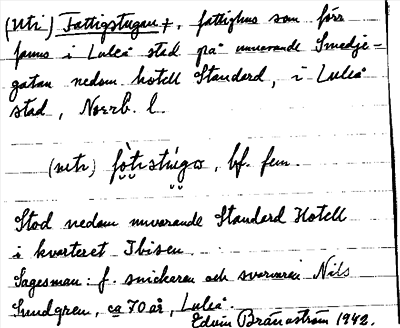 (utr) Fattigstugan +, fattighus som förr
fanns i Luleå stad på nuvarande Smedje-
gatan nedom hotell Standard, i Luleå
stad, Norrb. l.
(utr) , bf. fem.
Stod nedom nuvarande Standard Hotell
i kvarteret Ibisen.
Sagesman: f. snickaren och svarvaren Nils
Sundgren, ca 70 år, Luleå.
Edvin Brännström 1942.